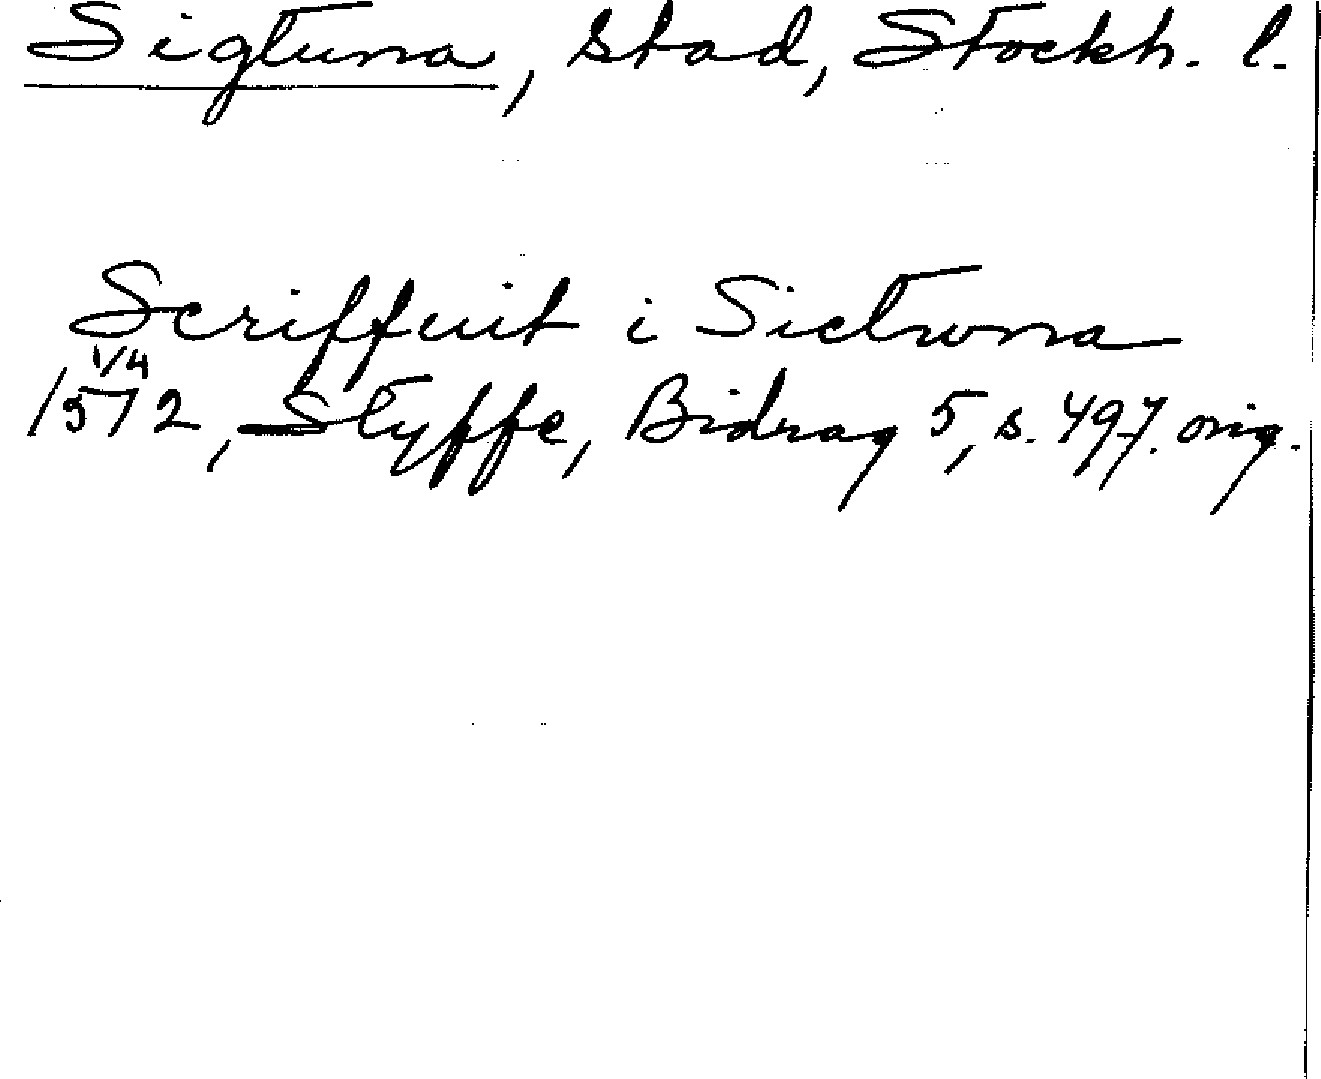 Sigtuna, stad, Stockh. l.
Scriffuit i Sictwna
1/4
1512, Styffe, Bidrag 5, s. 497. orig.